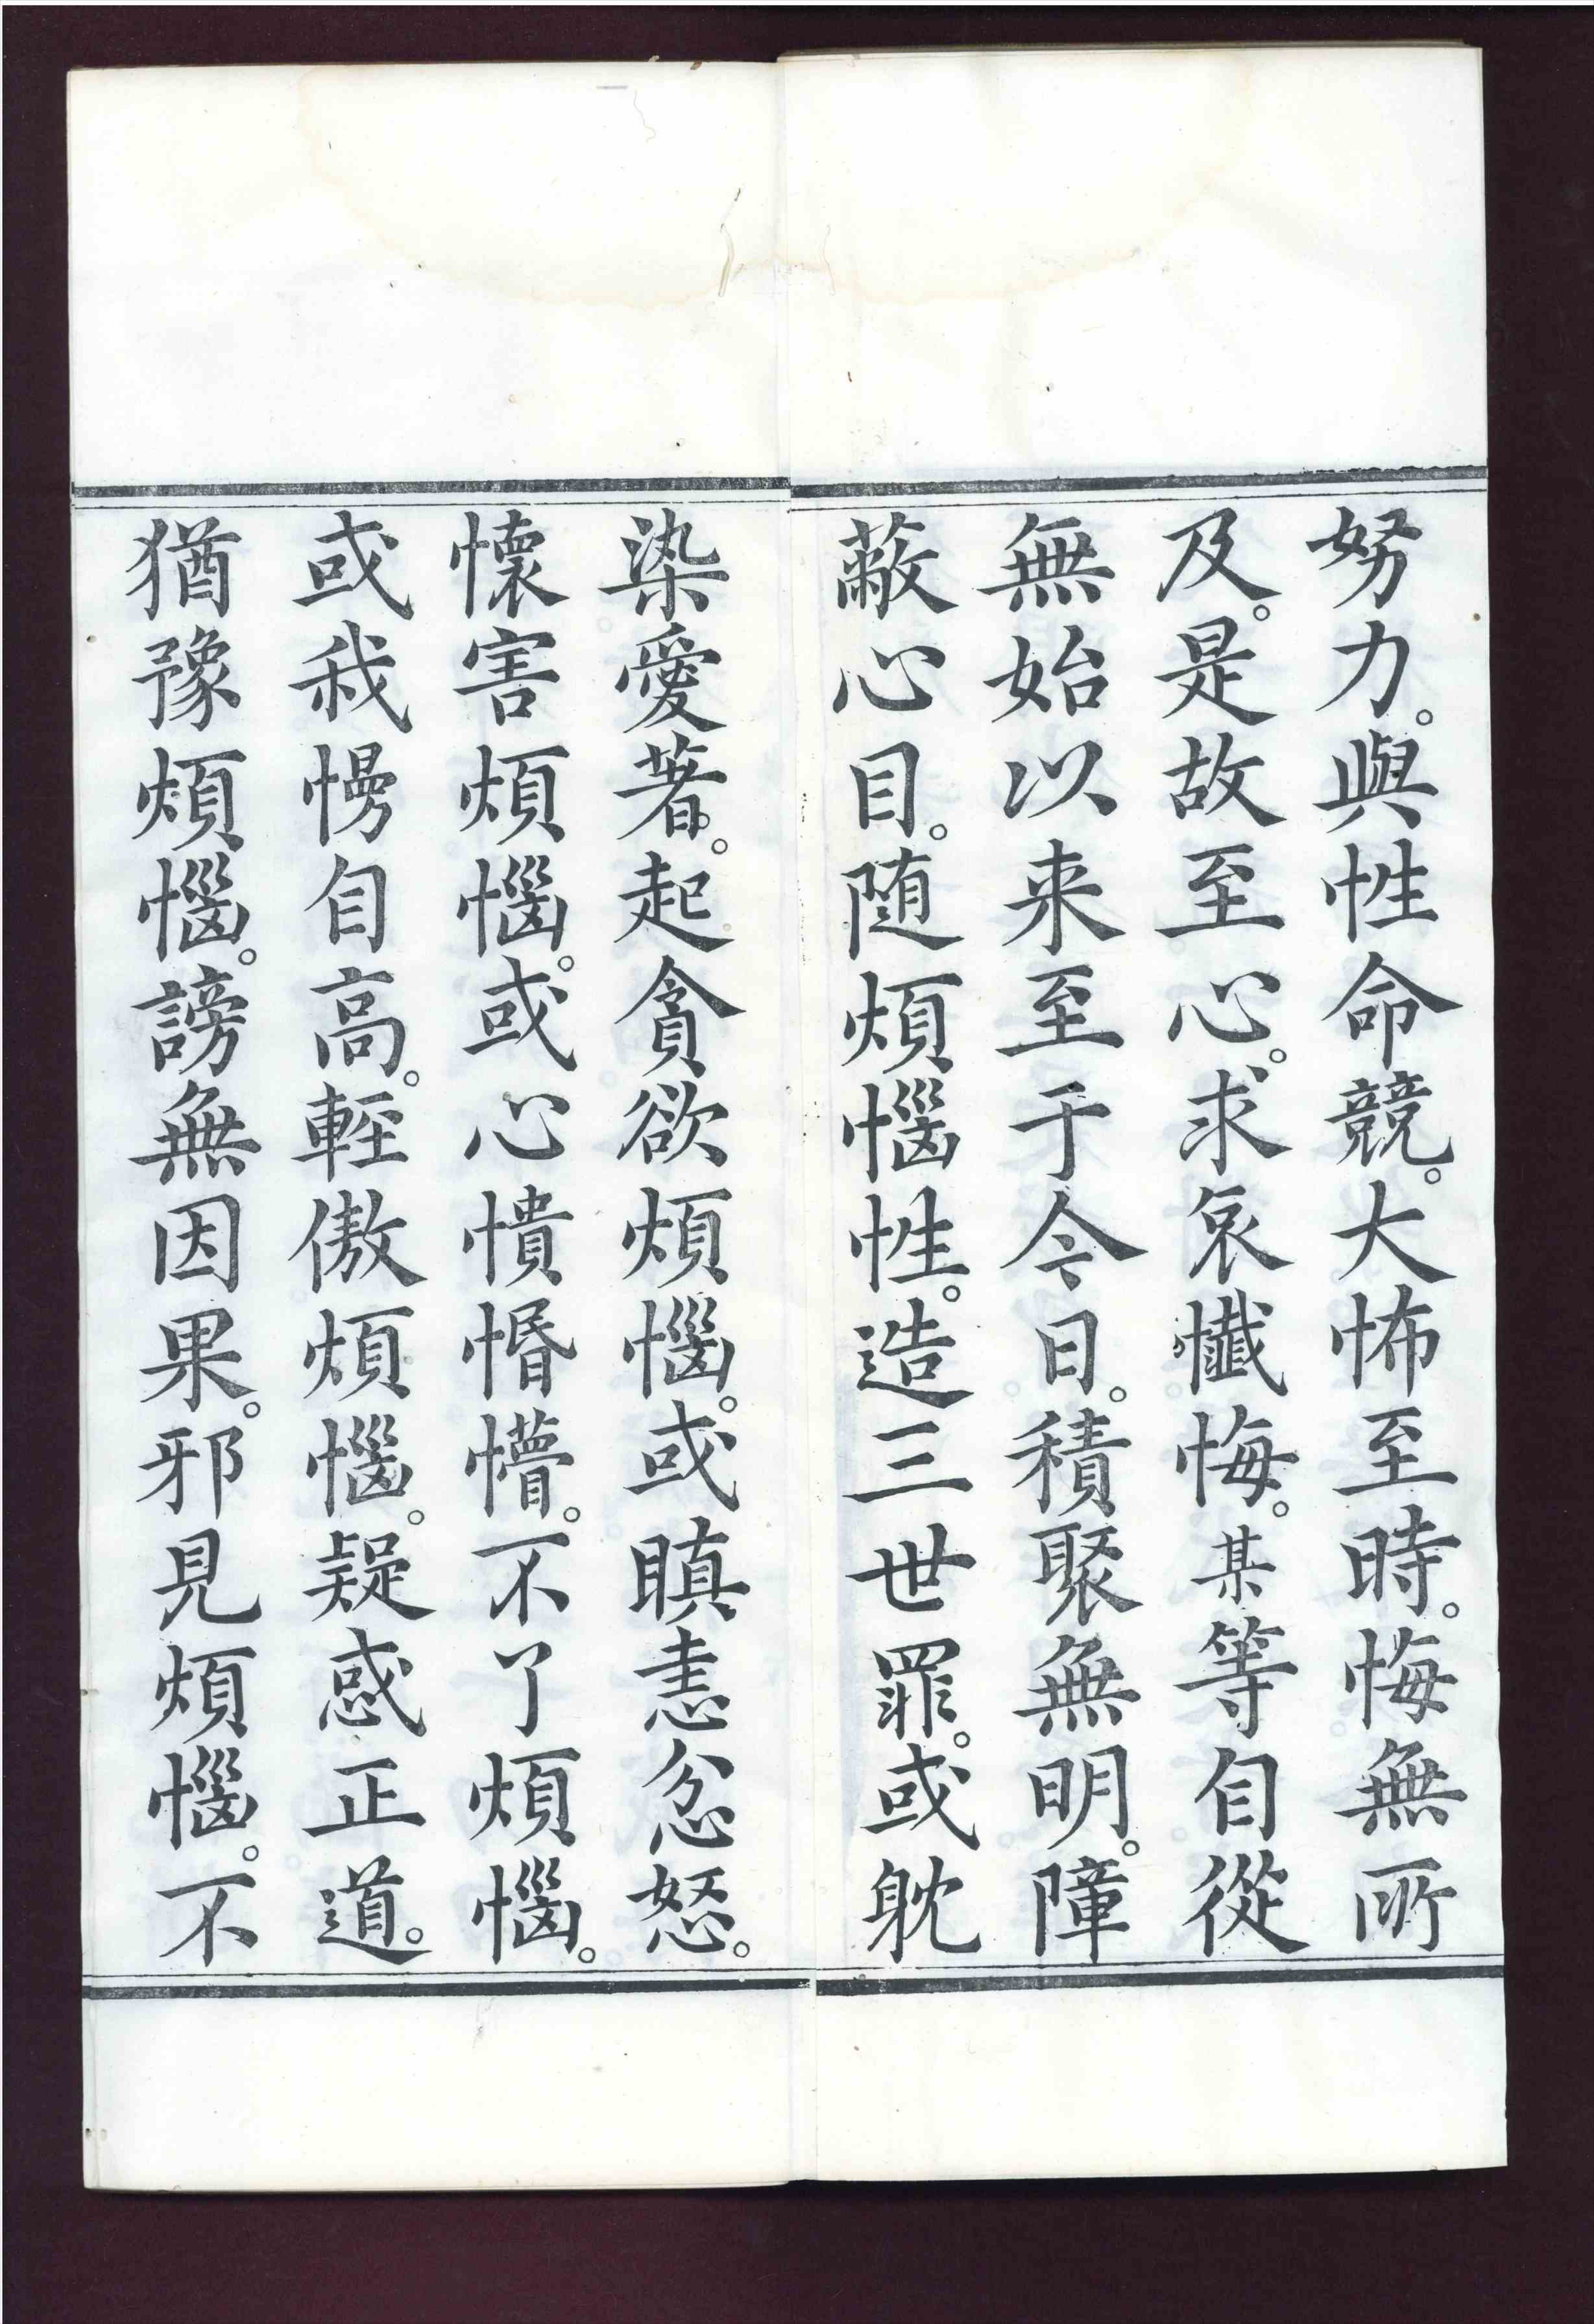 努力。與性命競。大怖至時。悔無所
及。是故至心。求哀懺悔。某等自從
無始以来至于今日。積聚無明。障
蔽心目。随煩惱性。造三世罪。或躭
染愛著。起貪欲煩惱。或瞋恚忿怒。
懷害煩惱。或心憒惛懵。不了煩惱。
或我慢自高。輕傲煩惱。疑惑正道。
猶豫煩惱。謗無因果。邪見煩惱。不